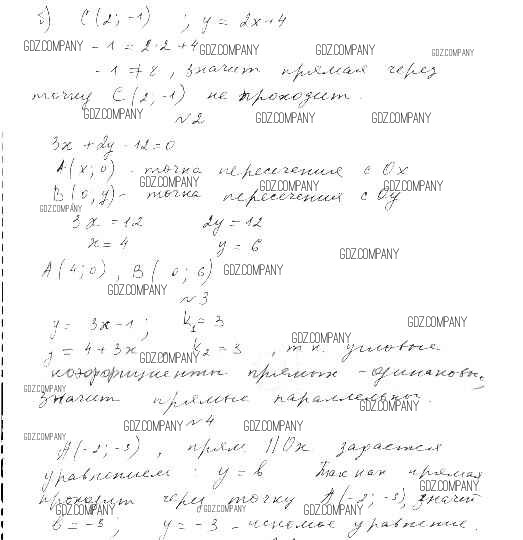 б) C(2; -1) ; y = 2x+4
GDZ.COMPANY - 1 = 2·2 +4 GDZ.COMPANY GDZ.COMPANY GDZ.COMPANY
- 1 ≠ 8 , значит прямая через
точку C(2; -1) не проходит.
GDZ.COMPANY GDZ.COMPANY GDZ.COMPANY
№2
3x + 2y - 12 = 0
A(x; 0) - точка пересечения с Ox
GDZ.COMPANY GDZ.COMPANY GDZ.COMPANY
B(0, y) - точка пересечения с Oy
GDZ.COMPANY
3x = 12 2y = 12
x = 4 y = 6
GDZ.COMPANY
A(4; 0) , B( 0; 6) GDZ.COMPANY
GDZ.COMPANY
№3
y = 3x - 1 ; k₁ = 3 GDZ.COMPANY
GDZ.COMPANY
y = 4 + 3x GDZ.COMPANY k₂ = 3 , т.к. угловые
коэффициенты прямых - одинаковы,
GDZ.COMPANY
значит прямые параллельны.
GDZ.COMPANY
GDZ.COMPANY №4 GDZ.COMPANY
GDZ.COMPANY
A(-2; -3) , прям || Ox задается
уравнением : y = b Так как прямая
GDZ.COMPANY
проходит через точку A(-2; -3), значит
GDZ.COMPANY GDZ.COMPANY GDZ.COMPANY
b = -3 ; y = -3 - искомое уравнение.